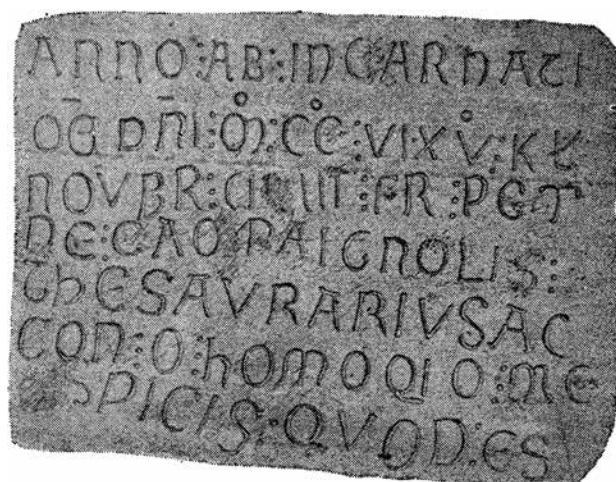 ANNO:AB:INCARNATI
OE DNI:M:CC:VI:XV:KL
NOVBR: FR:PET
THESAVRARIVS AC
CON:O:hOMO QI O:ME
SPICIS:QVOD:ES